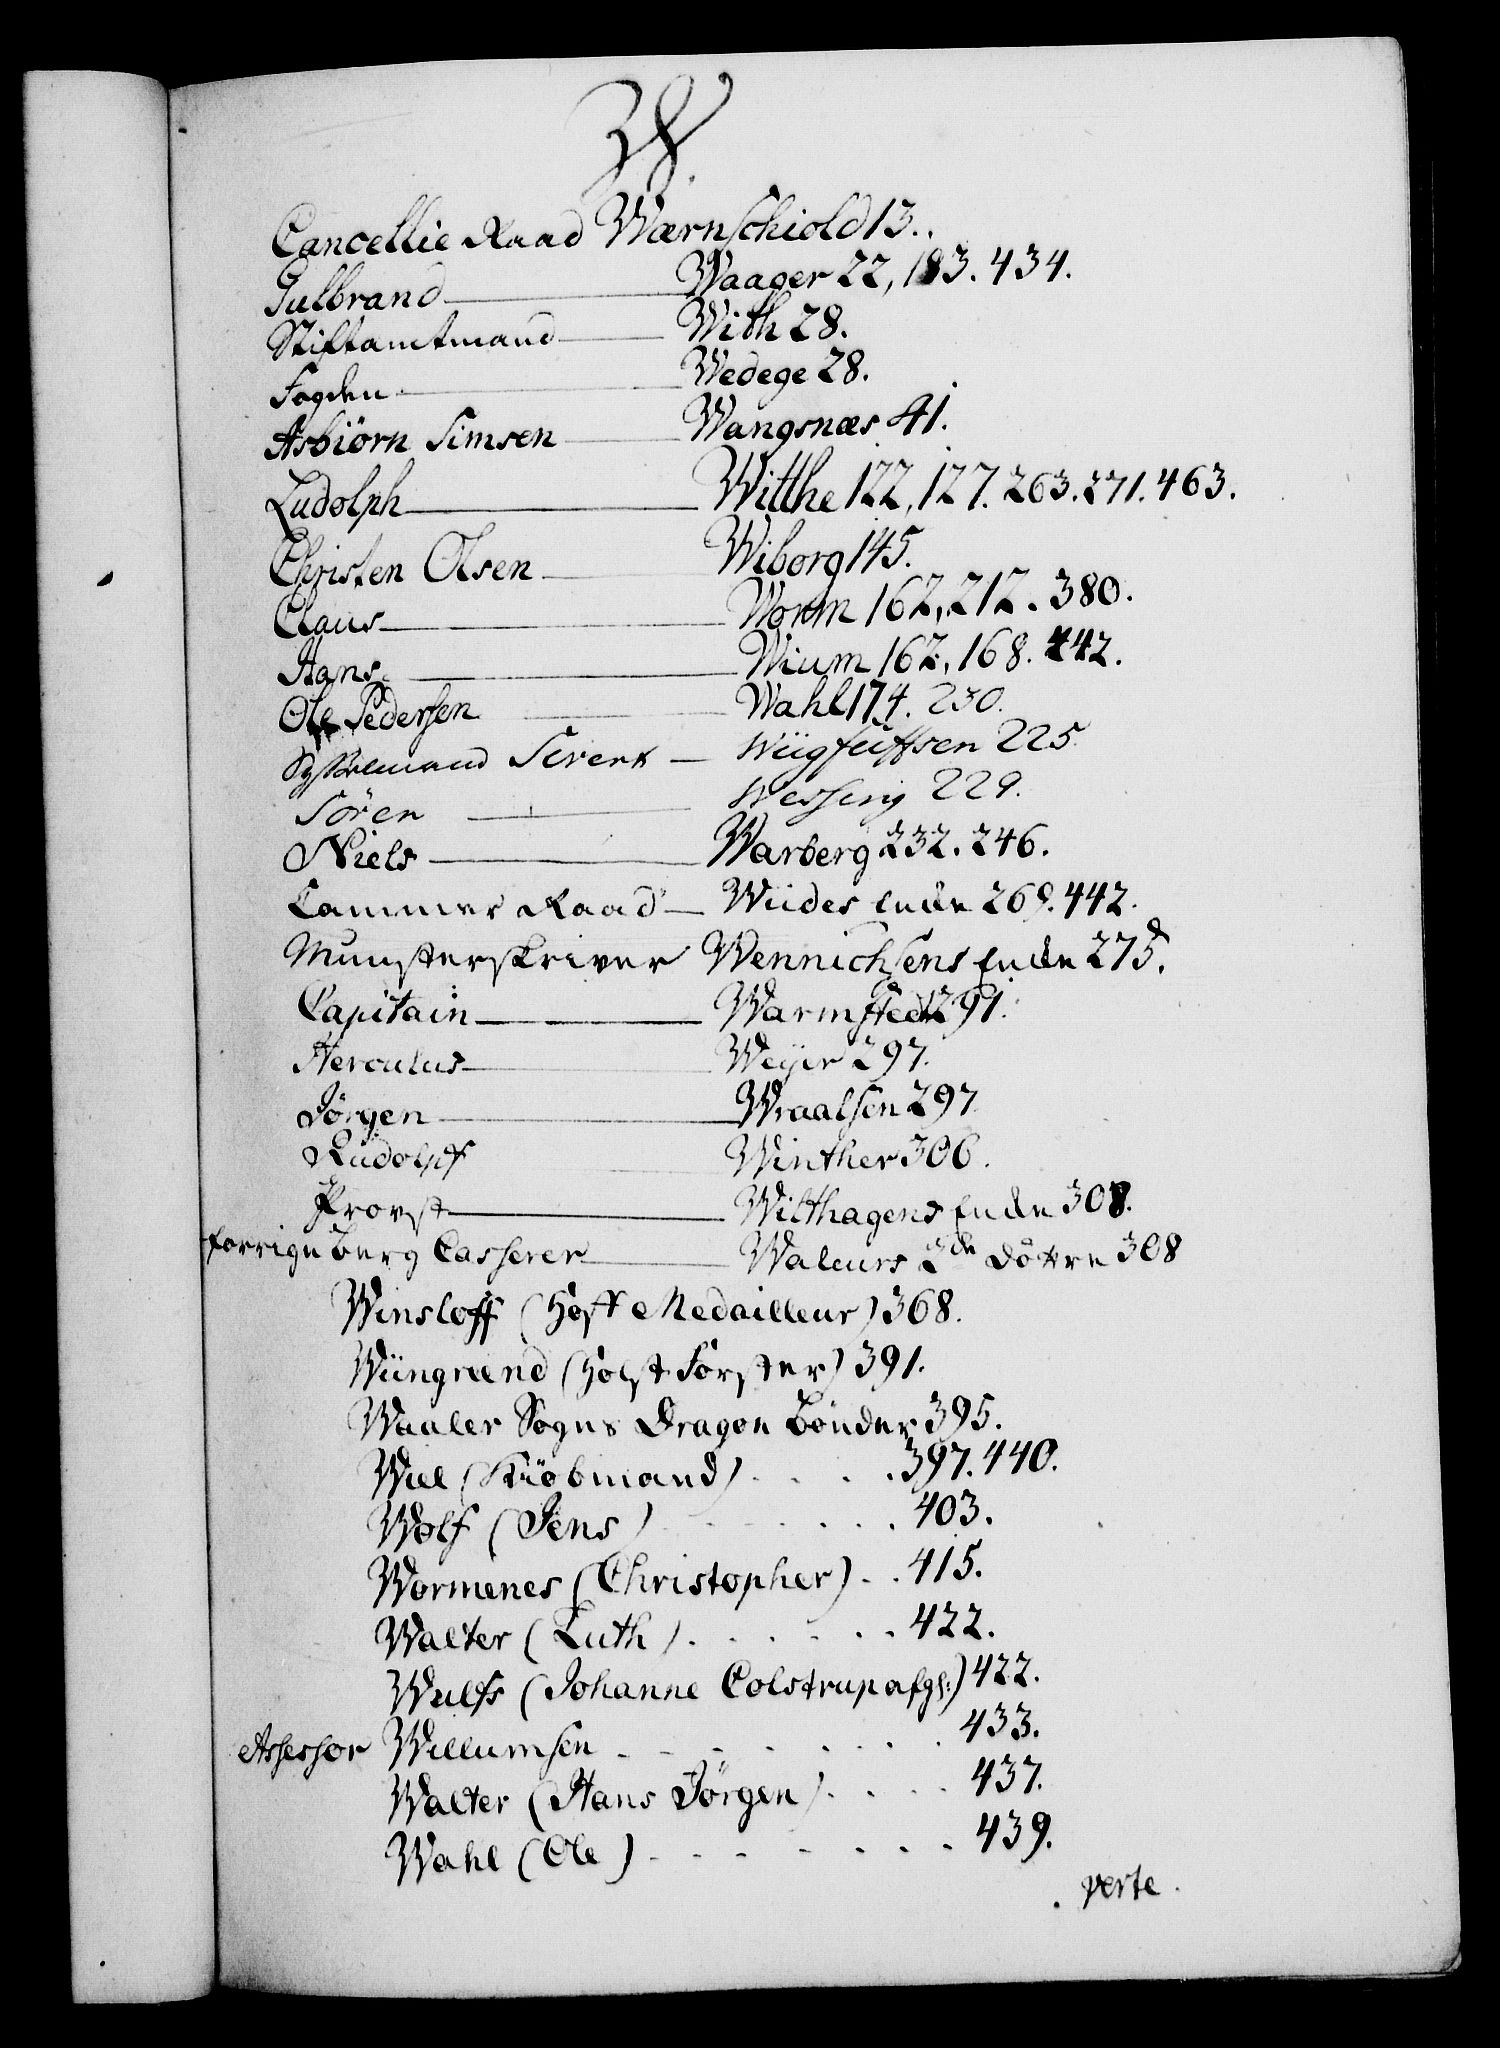 W.
Cancellie Raad Wærnschiold 13.
Gulbrand Waager 22, 183. 434.
Stiftamtmand With 28.
Fogden Wedege 28.
Asbiörn Simsen Wangsnæs 41.
Ludolph Witthe 122, 127. 263. 271. 463.
Christen Olsen Wiborg 145.
Claus Worm 162, 212. 380.
Hans Wium 162, 168. 442.
Ole Pedersen Wahl 174. 230.
Sysselmand Sivert Wiigfussen 225.
Sören Wessing 229.
Niels Warberg 232. 246.
Cammer Raad Wiides Enke 269. 442.
Munsterskriver Wennichsens Enke 275.
Capitain Warmstedt 291.
Herculus Weyer 297.
Jörgen Wraalsen 297
Rudolph Winther 306.
Provst Wilthagens Enke 308.
forrige Berg Casserer Waleurs 2de Döttre 308
Winsloff (Hoff Medailleur) 368.
Wiingreend (Holst Förster) 391.
Waaler Sogns Dragon Bönder 395.
Wiel (Kiöbmand) . . . . 397. 440.
Wolf (Jens) . . . . . . 403.
Wormenes (Christopher) . . 415.
Walter (Luth) . . . . . . 422.
Wulfs (Johanne Colstrup afgl:) 422.
Assessor Willumsen . . . . . . . 433.
Walter (Hans Jörgen) . . . . 437.
Wahl (Ole) . . . . . . . . 439.
verte.